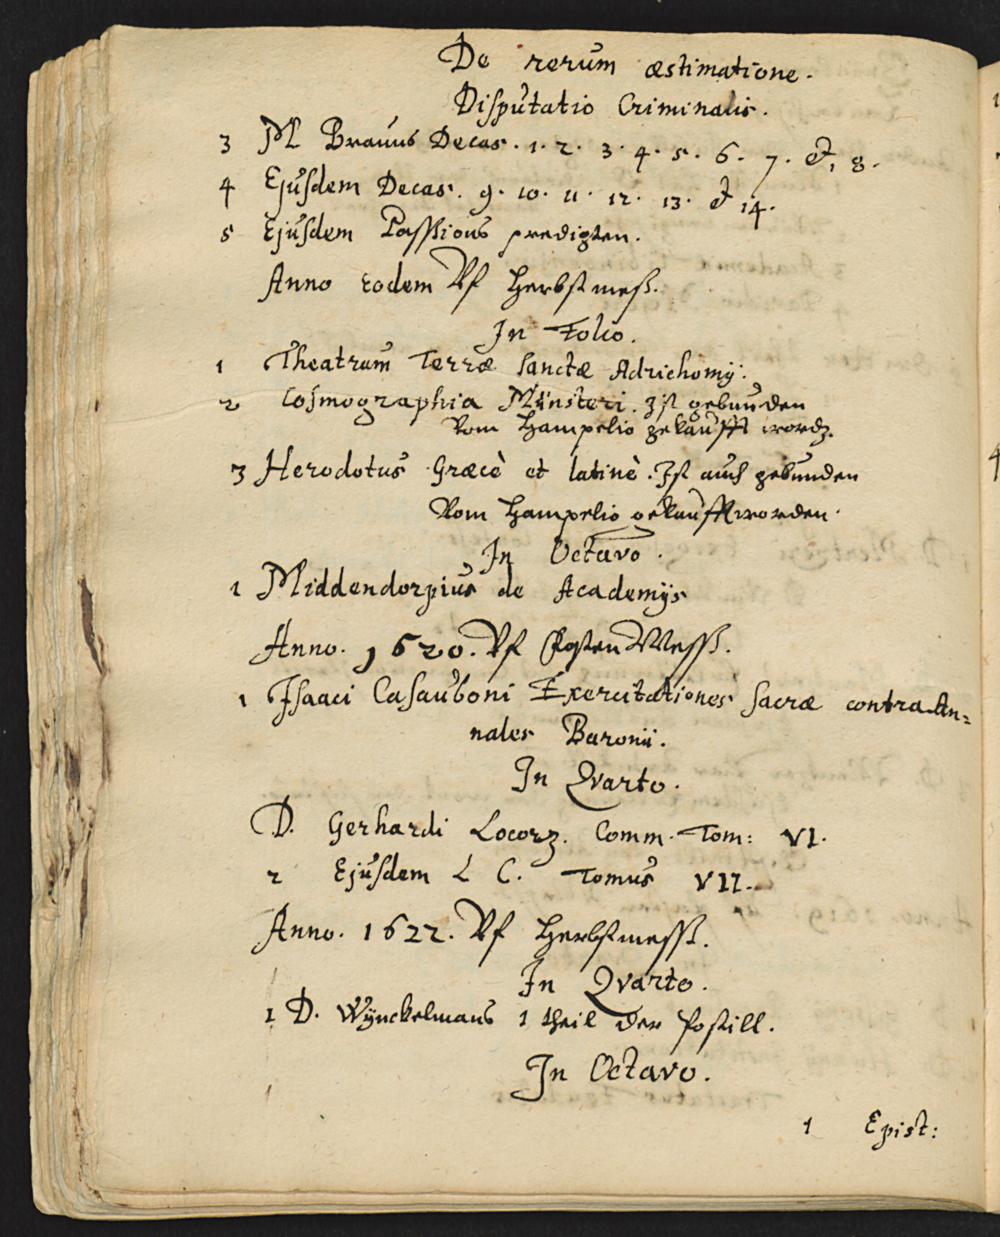 De rerum æstimatione.
Disputatio Criminalis.
3 M Brauns Decas. 1. 2. 3. 4. 5. 6. 7. et, 8.
4 Ejusdem Decas. 9. 10. 11. 12. 13. et 14.
5 Ejusdem Passions predigten.
Anno eodem Vf Herbst mess.
In Folio.
1 Theatrum Terræ sanctæ Adrichomij.
2 Cosmographia Münsteri. Ist gebunden
Vom Hampelio gekaufft word.
3 Herodotus Græcè et latinè. Ist auch gebunden
Vom Hampelio gekaufft worden.
In Octavo.
1 Middendorpius de Academijs
Anno. 1620. Vf Fasten Mess.
1 Isaaci Casauboni Exercitationes sacræ contra An=
nales Baronii.
In Qvarto.
D. Gerhardi Locorz. Comm. Tom: VI.
2 Ejusdem L C. Tomus VII.
Anno. 1622. Vf Herbstmess.
In Qvarto.
1 D. Wÿnckelmans 1 theil der Postill.
In Octavo.
1 Epist: